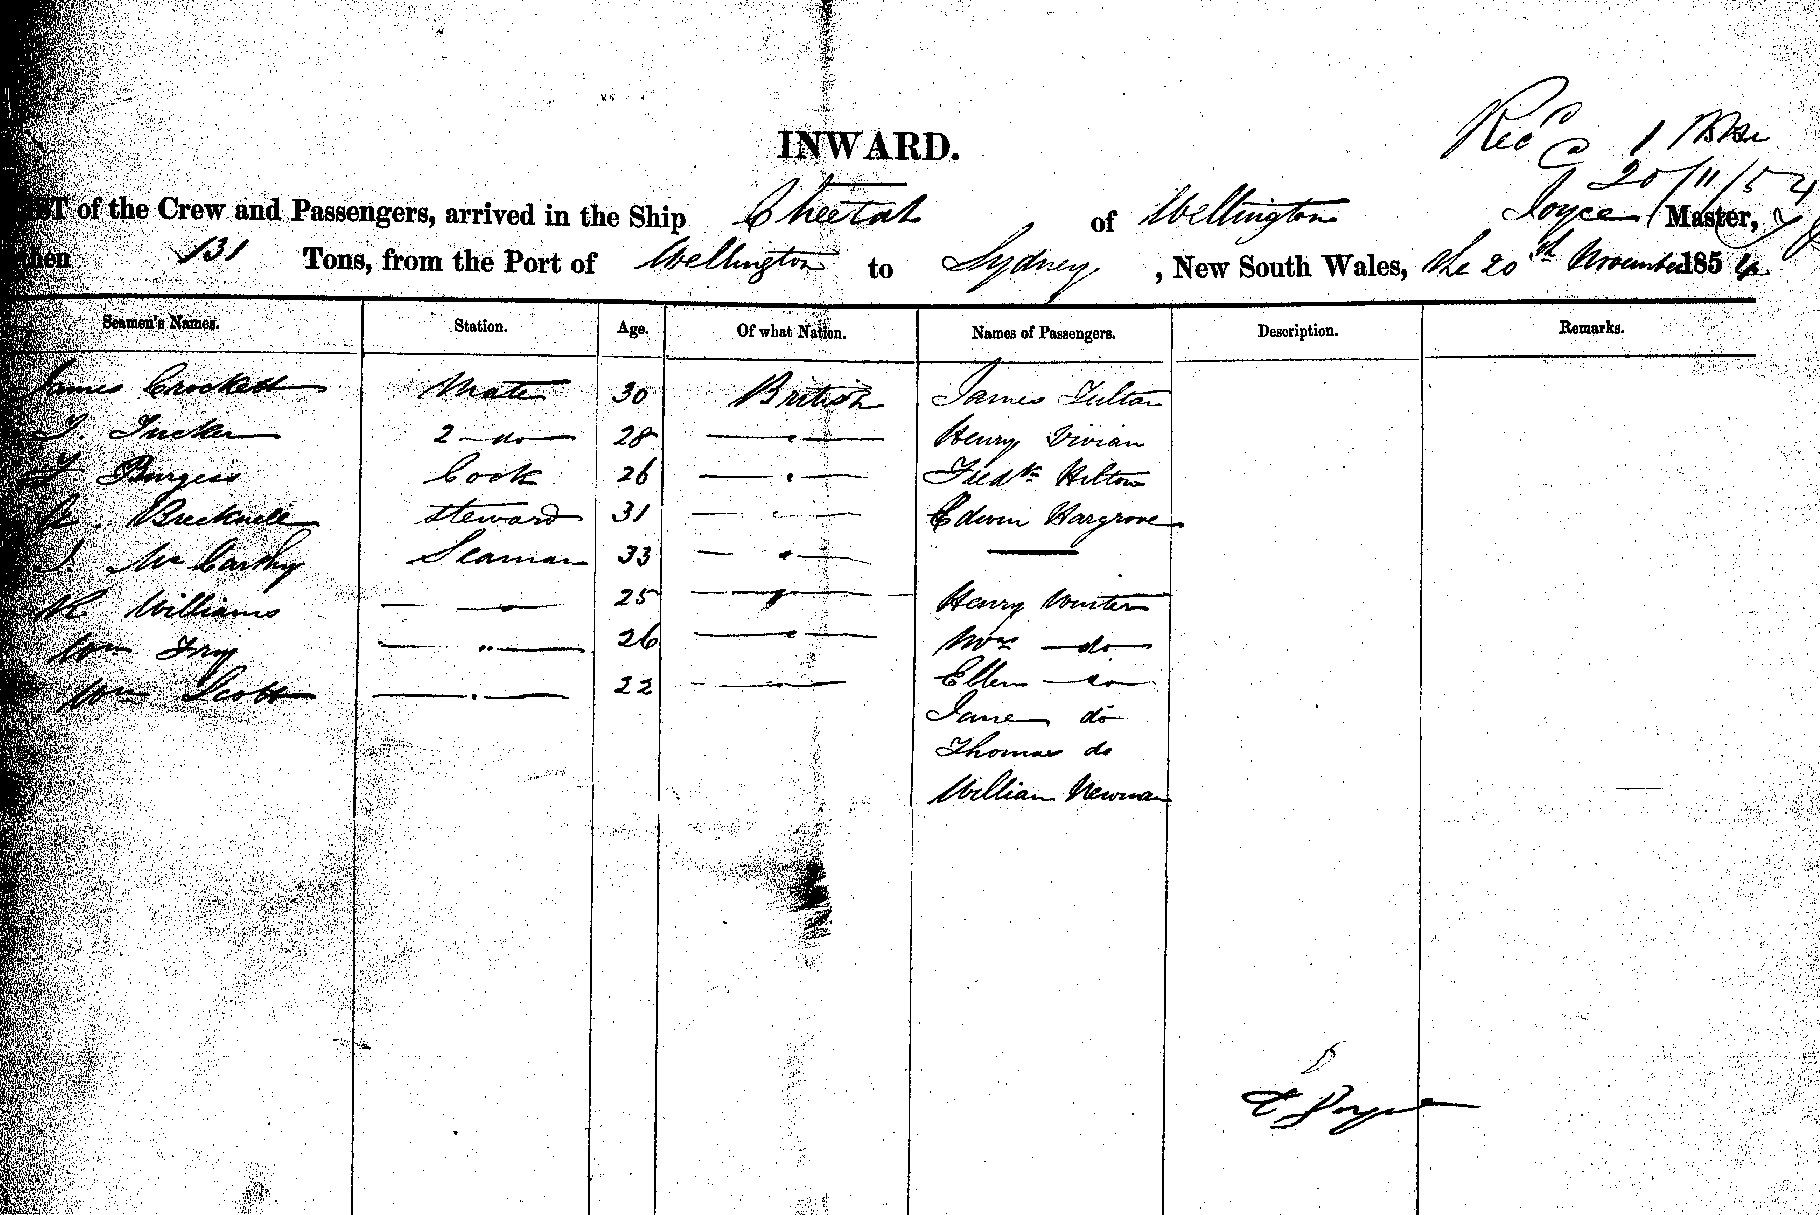 Rec^d 1 
20/11/54
INWARD.
of the Crew and Passengers, arrived in the Ship Cheetah of Wellington Joyce Master,
131 Tons, from the Port of Wellington to Sydney, New South Wales, the 20th November 1854
Seamen's Names. Station. Age. Of what Nation. Names of Passengers. Description. Remarks.
James Crockett Mate 30 British James Fulton
T. Tucker 2 — do — 28 — " — Henry Vivian
Burgess Cook 26 — " — Fredk Hilton
Brecknell Steward 31 — " — Edwin Hargrove
McCarthy Seaman 33 — " —
Williams — " — 25 — " — Henry Winter
Wm Fry — " — 26 — " — Mrs — do —
Wm Scott — " — 22 — " — Ellen — do —
Jane do
Thomas do
William Newman
E Joyce